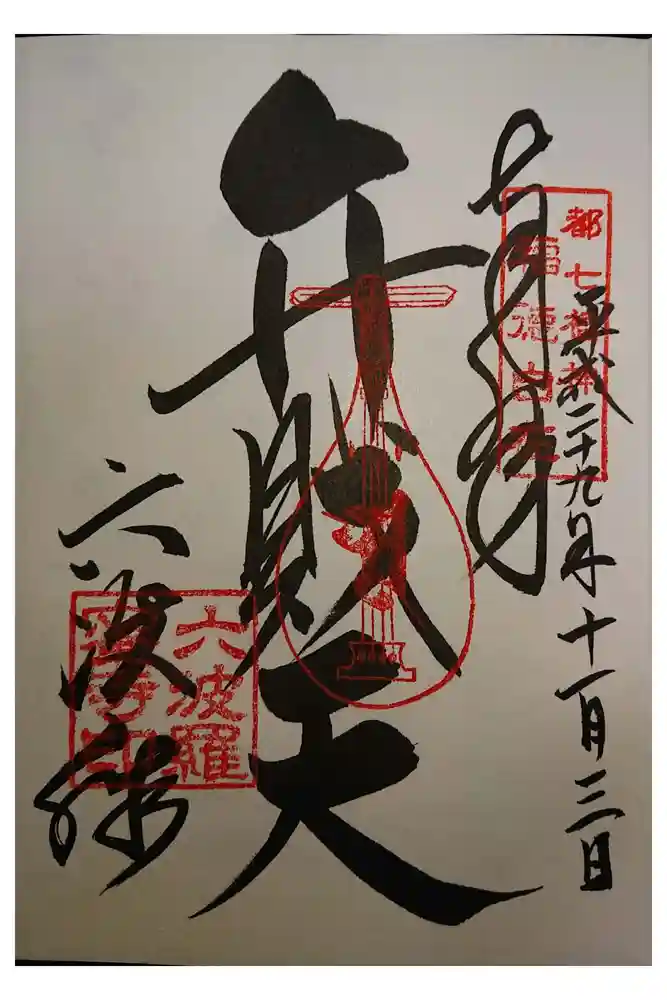 奉拝
都七福神
福徳自在
平成二十九年十一月三日
弁財天
六波羅
六波羅
蜜寺印